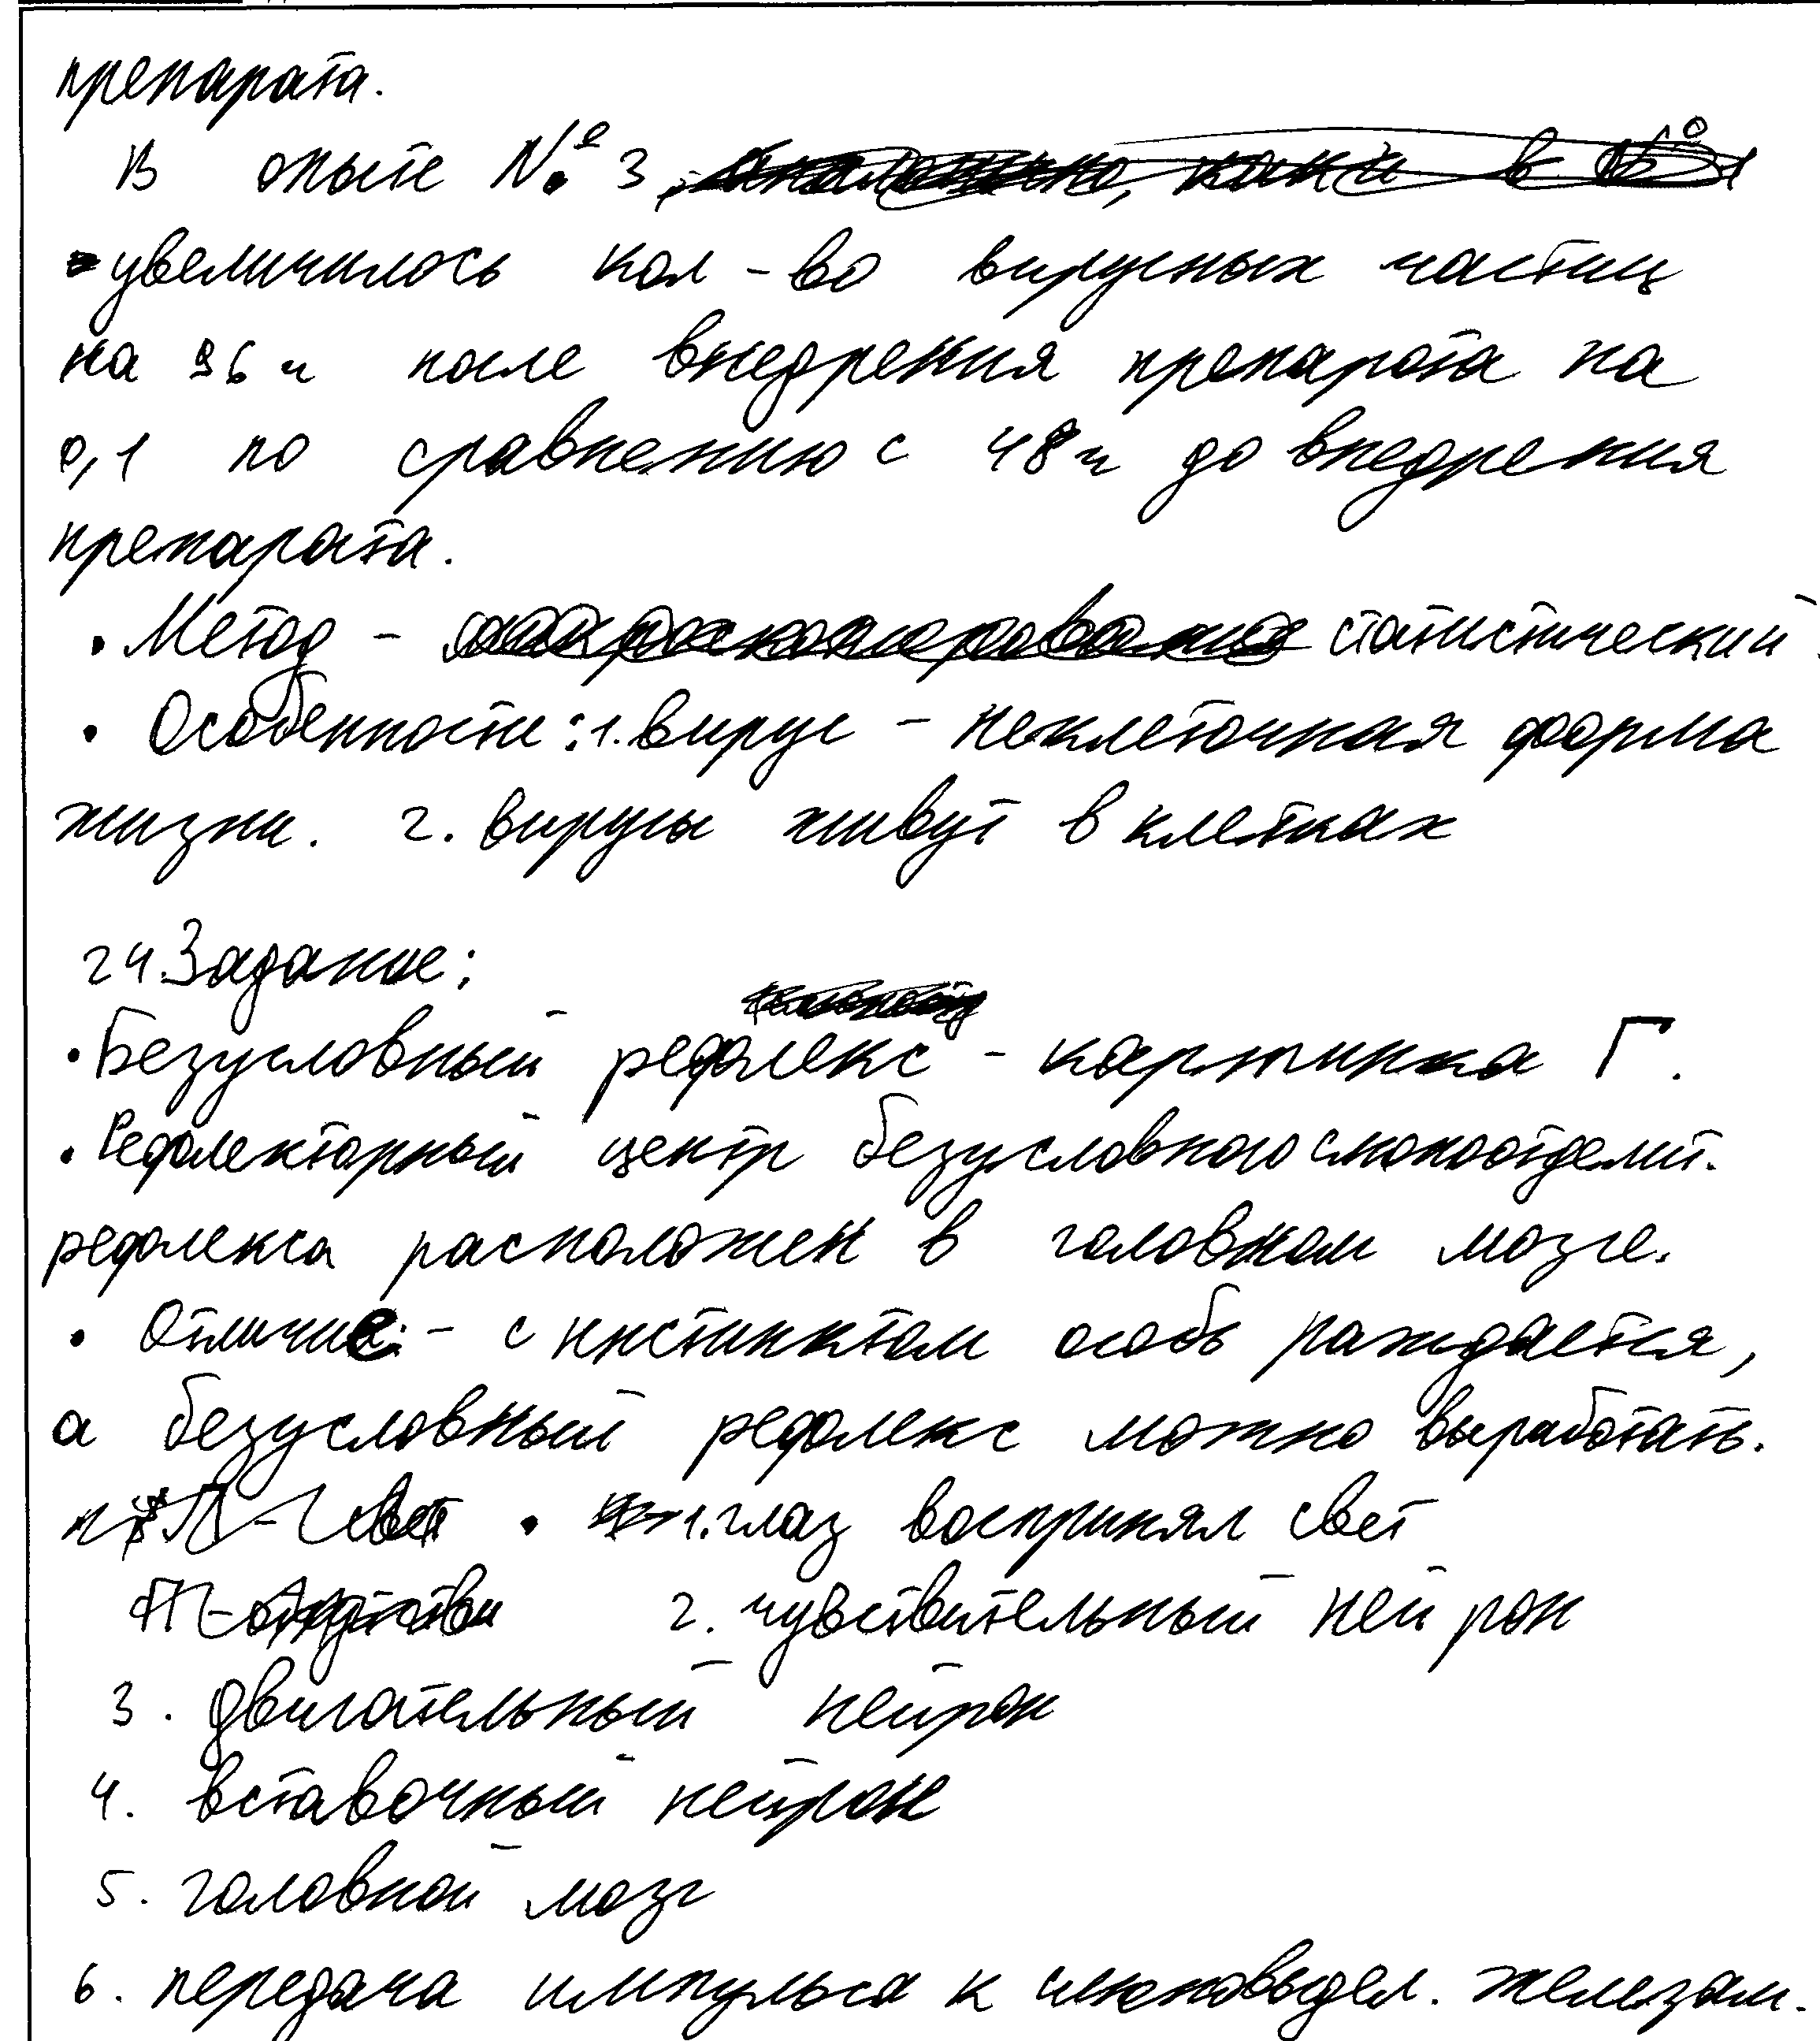 препарата.
В опыте № 3
увеличилось кол-во вирусных частиц
на 96 ч после внедрения препарата на
0,1 по сравнению с 48 ч до внедрения
препарата.
• Метод - статистический.
• Особенности: 1. вирус - неклеточная форма
жизни. 2. вирусы живут в клетках
24. Задание:
• Безусловный рефлекс - картинка Г.
• Рефлекторный центр безусловного слюноотделит.
рефлекса расположен в головном мозге.
• Отличие: - с инстинктом особь рождается,
а безусловный рефлекс можно выработать.
• 1. глаз воспринял свет
2. чувствительный нейрон
3. двигательный нейрон
4. вставочный нейрон
5. головной мозг
6. передача импульса к слюновыдел. железам.